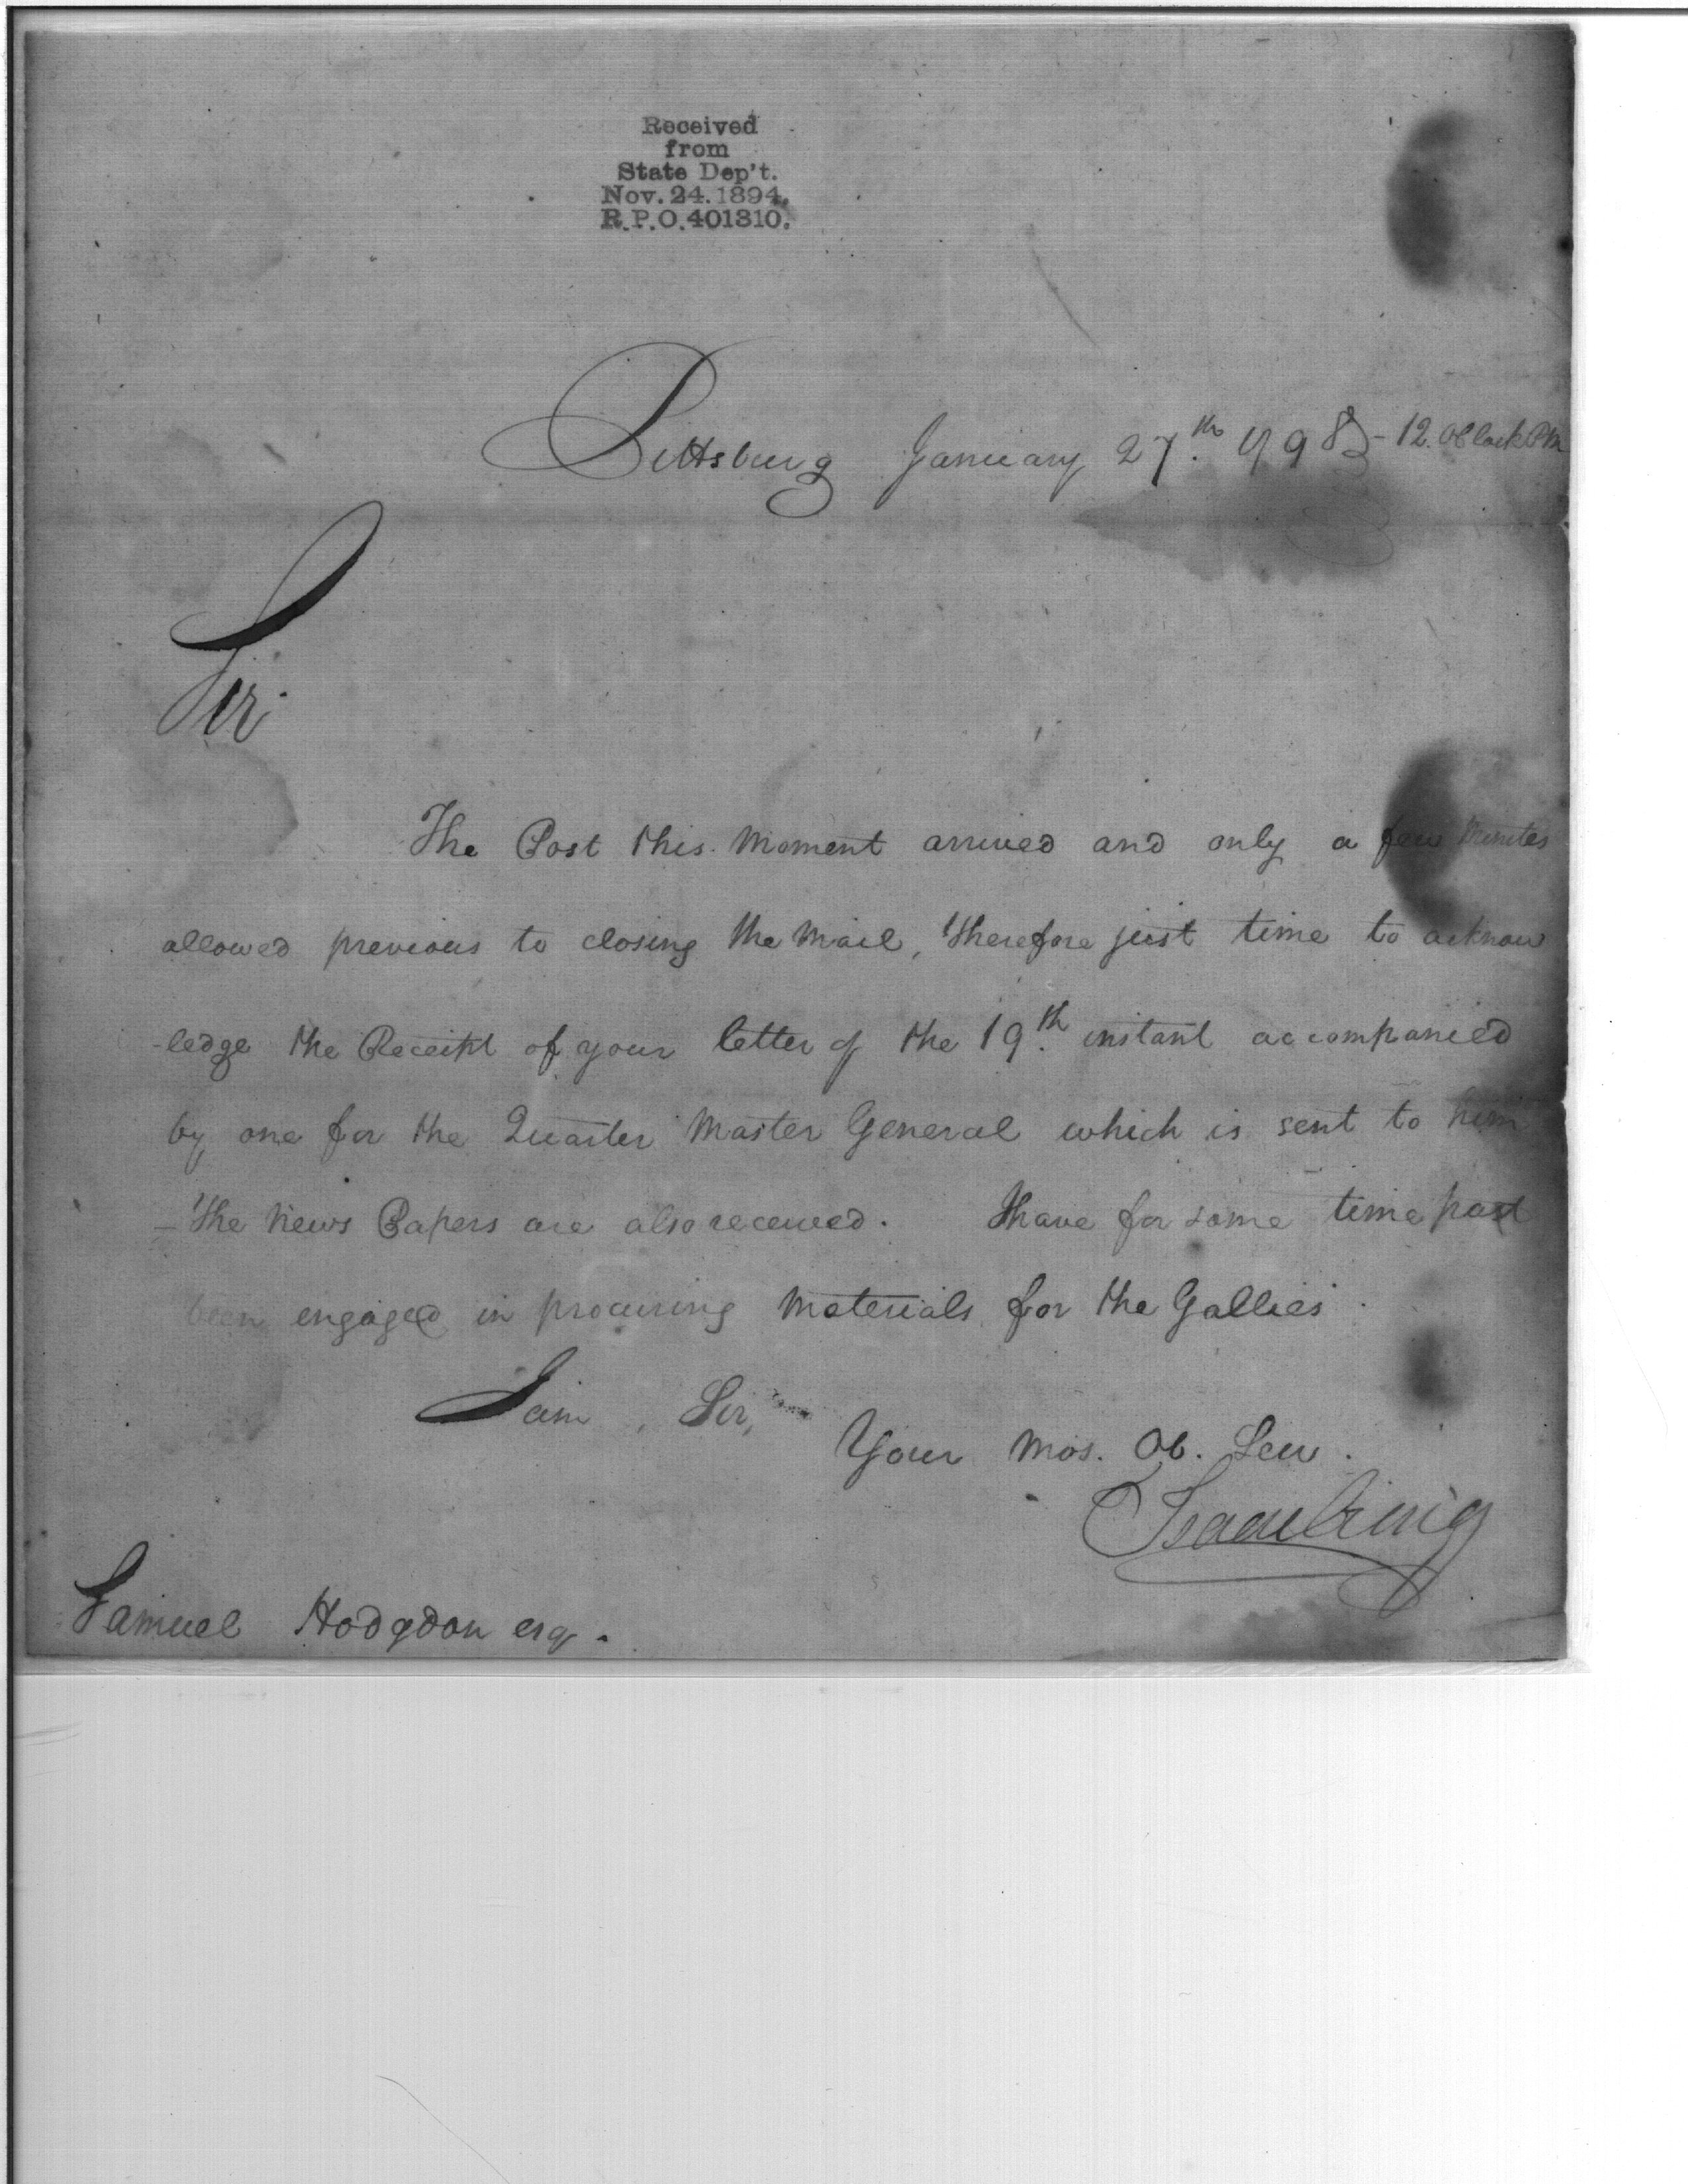 Received
from
State Dep't.
Nov. 24. 1894.
R.P.O. 401310.
Pittsburg January 27.th 1798 - 12. OClock PM
Sir.
The Post this Moment arrived and only a few Minutes
allowed previous to closing the Mail, therefore just time to acknow
-ledge the Receipt of your letter of the 19.th instant accompanied
by one for the Quarter Master General which is sent to him
- The News Papers are also received. I have for some time past
been engaged in procuring Materials for the Gallies.
I am, Sir,
Your Mos. Ob. Serv.
Isaac Craig
Samuel Hodgdon esq.